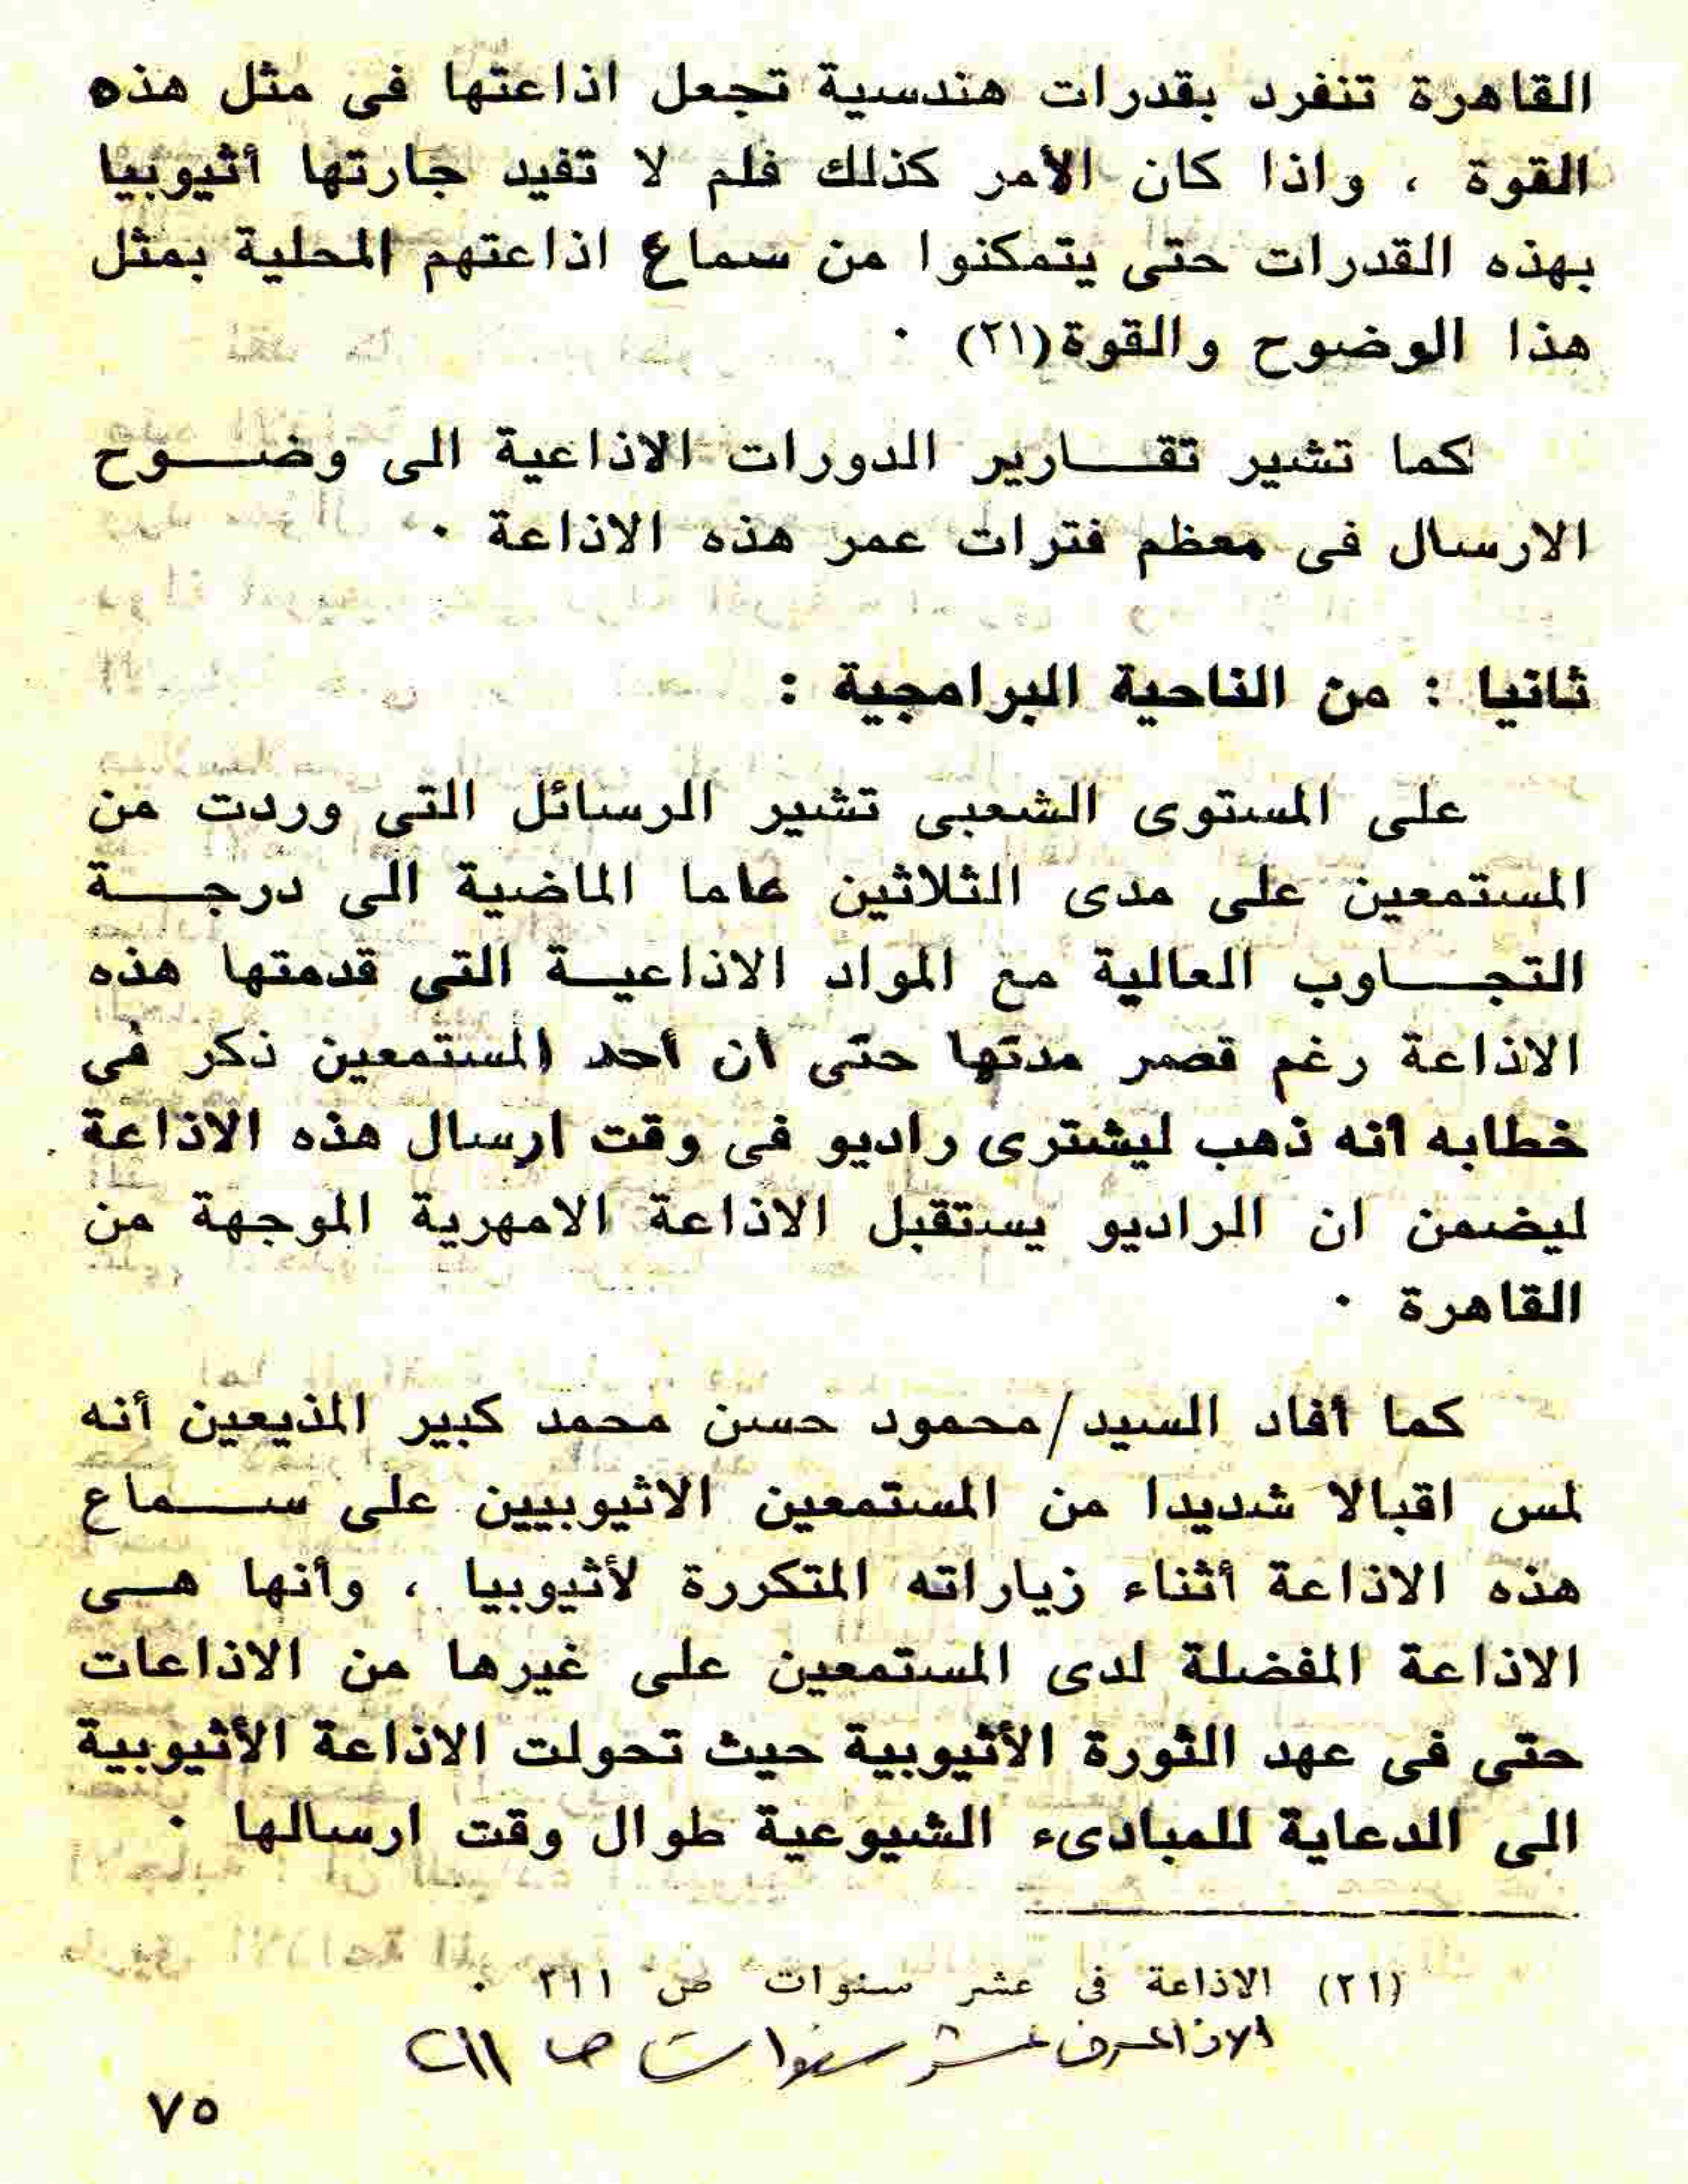 القاهرة تنفرد بقدرات هندسية تجعل اذاعتها فى مثل هذه
القوة ، واذا كان الأمر كذلك فلم لا تفيد جارتها أثيوبيا
بهذه القدرات حتى يتمكنوا من سماع اذاعتهم المحلية بمثل
هذا الوضوح والقوة(٢١) ٠
كما تشير تقـــارير الدورات الاذاعية الى وضـــوح
الارسال فى معظم فترات عمر هذه الاذاعة ٠
ثانيا : من الناحية البرامجية :
على المستوى الشعبى تشير الرسائل التى وردت من
المستمعين على مدى الثلاثين عاما الماضية الى درجـــة
التجـــاوب العالية مع المواد الاذاعيـة التى قدمتها هذه
الاذاعة رغم قصر مدتها حتى أن أحد المستمعين ذكر فى
خطابه أنه ذهب ليشترى راديو فى وقت ارسال هذه الاذاعة
ليضمن ان الراديو يستقبل الاذاعة الامهرية الموجهة من
القاهرة ٠
كما أفاد السيد/محمود حسن محمد كبير المذيعين أنه
لمس اقبالا شديدا من المستمعين الاثيوبيين على ســـماع
هذه الاذاعة أثناء زياراته المتكررة لأثيوبيا ، وأنها هـى
الاذاعة المفضلة لدى المستمعين على غيرها من الاذاعات
حتى فى عهد الثورة الأثيوبية حيث تحولت الاذاعة الأثيوبية
الى الدعاية للمبادىء الشيوعية طوال وقت ارسالها ٠
(٢١) الاذاعة فى عشر سنوات ص ٢١١ ٠
الاذاعة فى عشر سنوات ص ٢١١
٧٥